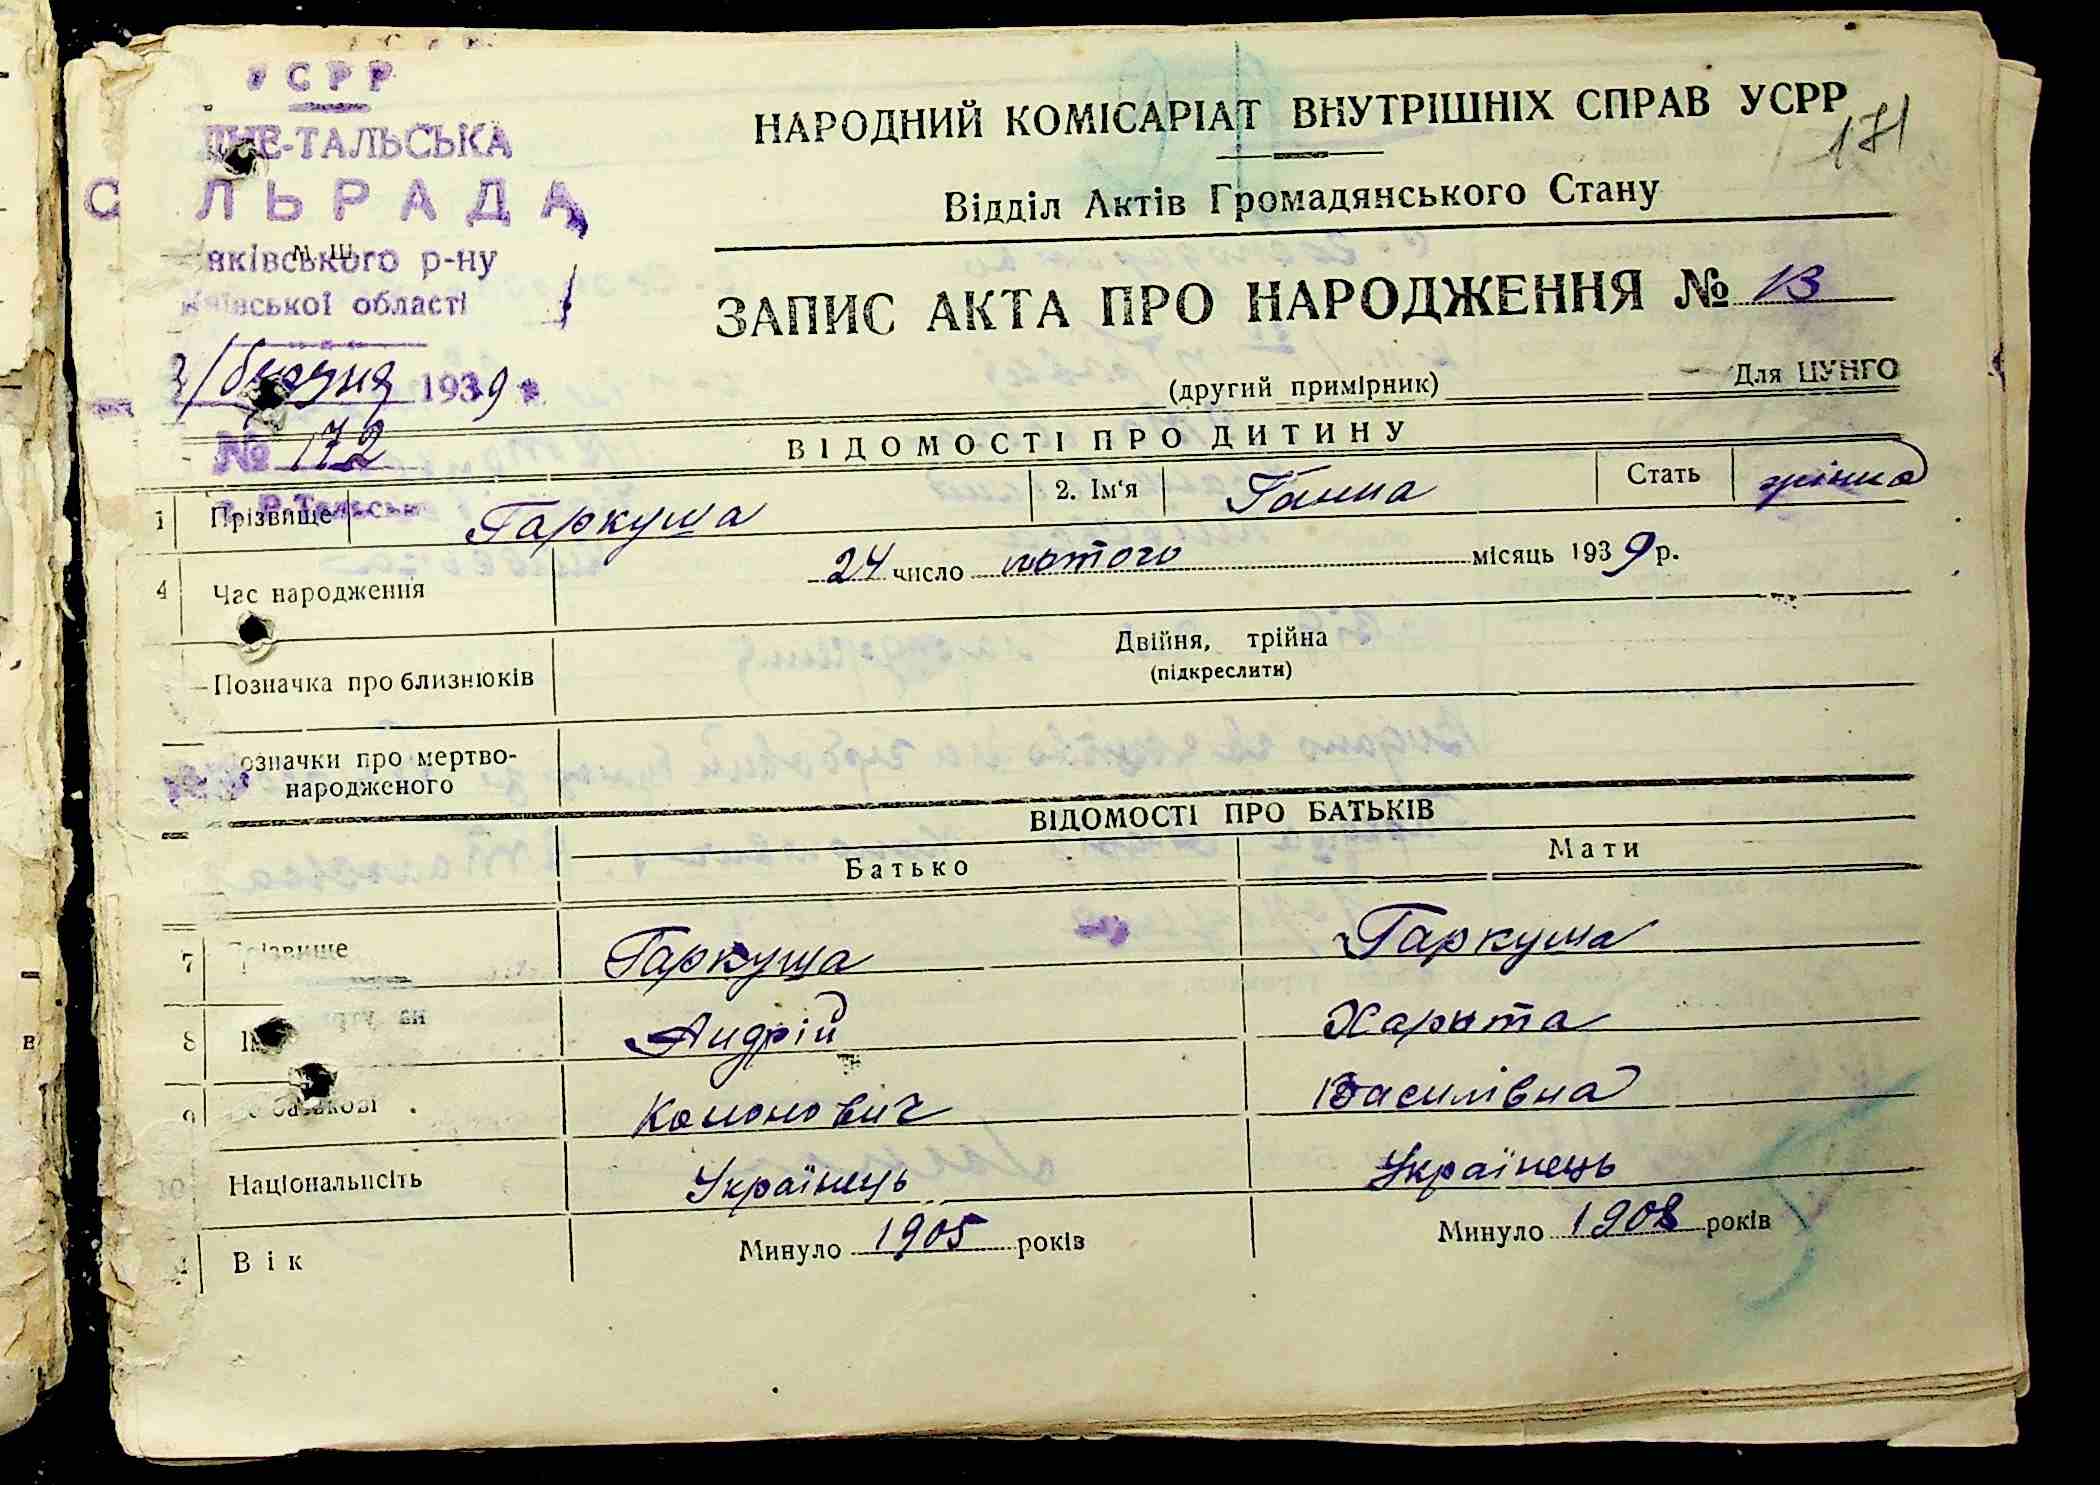 УСРР
НЕ-ТАЛЬСЬКА
СЛЬРАДА
НАРОДНИЙ КОМІСАРІАТ ВНУТРІШНІХ СПРАВ УСРР
171
Відділ Актів Громадянського Стану
нківського р-ну
Київської області
ЗАПИС АКТА ПРО НАРОДЖЕННЯ № 13
3/березня 1939 р.
(другий примірник) Для ЦУНГО
№ 172
ВІДОМОСТІ ПРО ДИТИНУ
1 Прізвище Гаркуша 2. Ім'я Ганна Стать жінка
4 Час народження 24 число лютого місяць 1939 р.
Позначка про близнюків Двійня, трійна
(підкреслити)
означки про мертво-
народженого
ВІДОМОСТІ ПРО БАТЬКІВ
Батько Мати
7 різвище Гаркуша Гаркуша
8 Ім Андрій Харыта
9 батькові Кононович Василівна
10 Національність Українець Українець
В і к Минуло 1905 років Минуло 1908 років